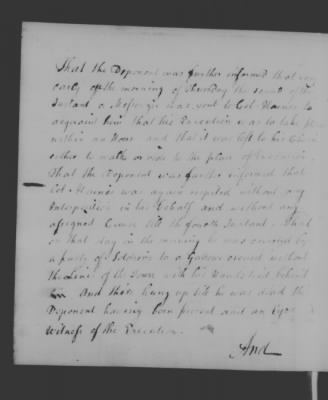 That the Deponent was further informed that very
early on the morning of thursday the second of the
Instant a Messenger was sent to Col. Haines to
acquaint him that his Execution was to take place
within an Hour and that it was left to his Choice
either to walk or ride to the place of Execution
That the Deponent was further informed that
Col. Haines was again respited without any
Interposition in his behalf and without any
assigned Cause till the fourth Instant. That
on that day in the morning he was conveyed by
a party of Soldiers to a Gallows erected without
the Lines of the Town with his Hands tied behind
him And there hung up till he was dead the
Deponent having been present and an Eye
Witness of the Execution.
And